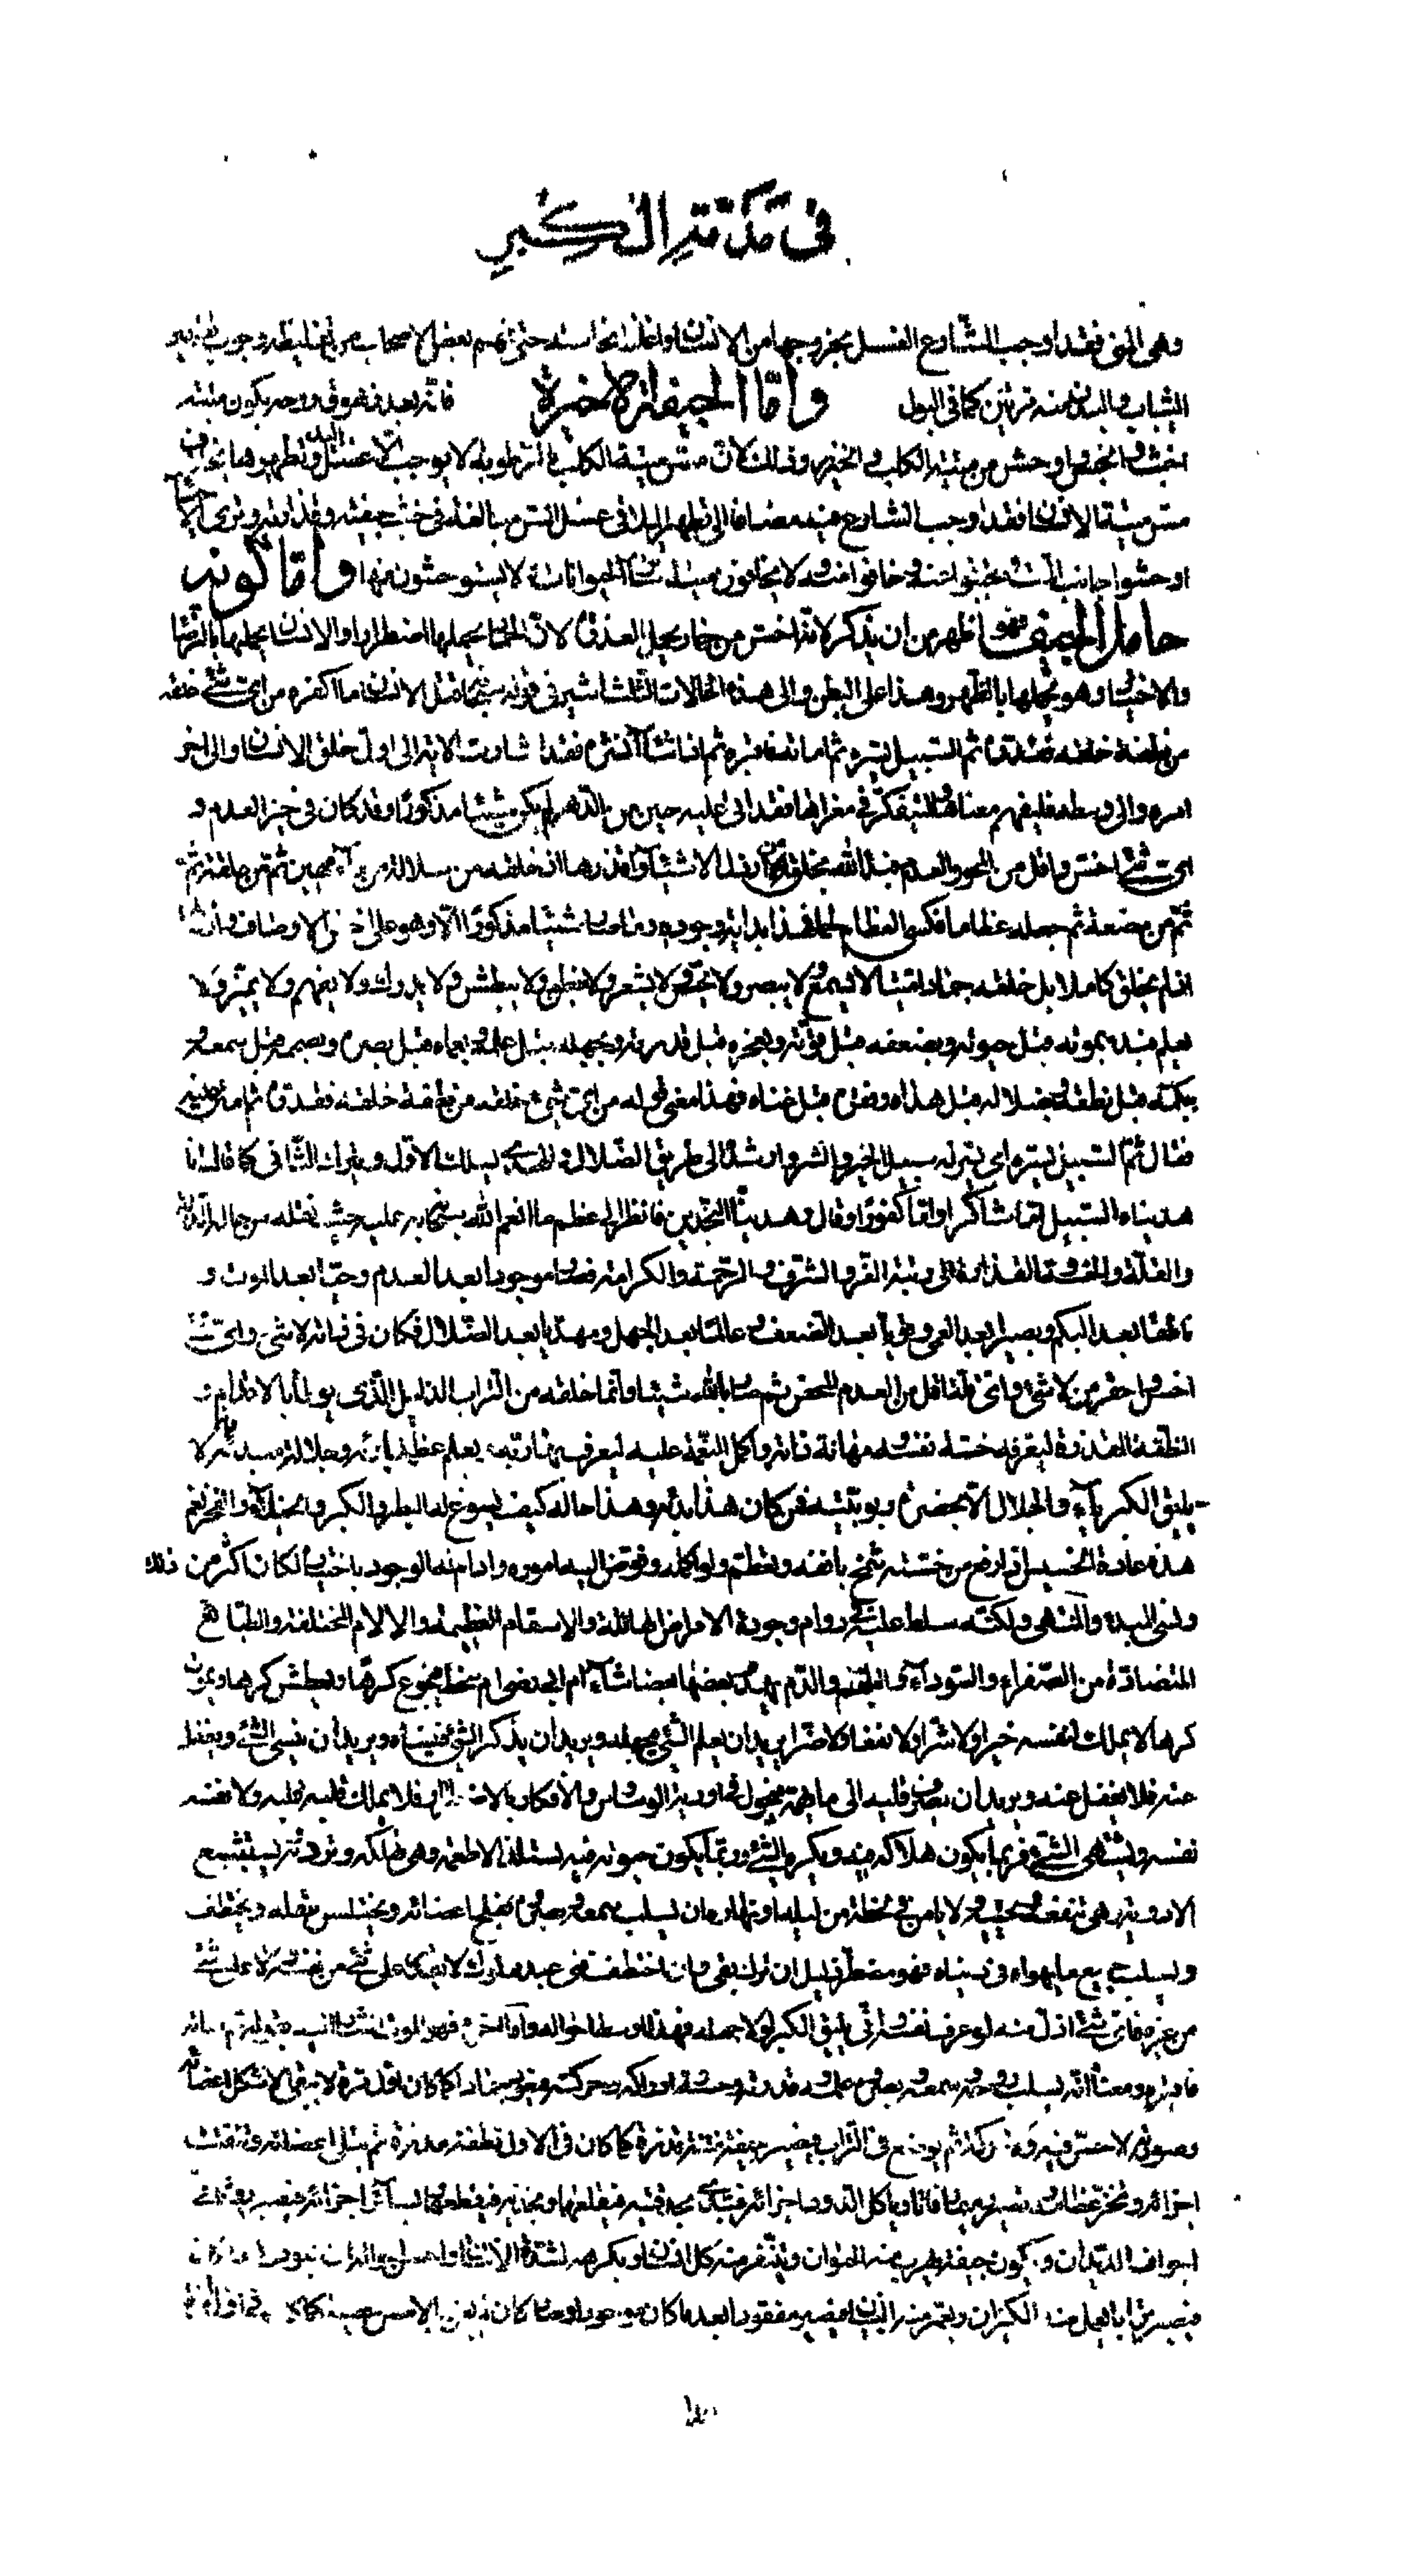 في مذمة الكبر
وهي المني فقد اوجب الشارع الغسل بخروجها من الانسان واغلظ نجاسته حتى فهم بعض الاصحاب من تغليظه وجوب تطهير
الثياب والبدن منه مرتين كما في البول واما الجيفة الاخيرة فانه بعد فهوق روحه يكون ميتته
اخبث وانجس واوحش من ميتة الكلب والخنزير وذلك لان مس ميتة الكلب بالرطوبة لا يوجب الا غسل اليد وتطهيرها
مس ميتة الانسان فقد اوجب الشارع فيه مضافا الى تطهير اليد غسل المس مبالغة في خبث جيفته وقذارته وترى
اوحشوا جانب الميت وتجنبوا عنه وخافوا منه ولا يخافون ميتة سائر الحيوانات ولا يستوحشون منها واما كونه
حامل الجيفة فهو اظهر من ان يذكر لانه اخس من حمار يحمل العذرة لان الحمار يحملها اضطرارا والانسان يحملها بالرضا
والاختيار وهو يحملها بالظهر وهذا على البطن والى هذه الحالات الثلث اشير في قوله سبحانه قتل الانسان ما اكفره من اي شئ خلقه
من نطفة خلقه فقدره ثم السبيل يسره ثم اماته فاقبره ثم اذا شاء انشره فقد اشارت الاية الى اول خلق الانسان والى اخر
امره والى وسطه فليفهم معناها وليتفكر في مغزاها فقد اتى عليه حين من الدهر لم يكن شيئا مذكورا وقد كان في حيز العدم و
اي شئ اخس واقل من المحو والعدم فبدأ الله بخلقه من ارذل الاشياء واقذرها اذ خلقه من سلالة من ماء مهين ثم من علقة ثم
ثم من مضغة ثم جعله عظاما فكسى العظام لحما فهذا بداية وجوده وما صار شيئا مذكورا الا وهو على اخس الاوصاف
اذ لم يخلق كاملا بل خلقه جمادا ميتا لا يسمع ولا يبصر ولا يحس ولا يشعر ولا ينطق ولا يبطش ولا يدرك ولا يفهم ولا يميز ولا
يعلم فبدء بموته قبل حيوته وبضعفه قبل قوته وبعجزه قبل قدرته وبجهله قبل علمه وبعماه قبل بصره وبصممه قبل سمعه و
ببكمه قبل نطقه وبضلاله قبل هداه وبفقره قبل غناه فهذا معنى قوله من اي شئ خلقه من نطفة خلقه فقدره ثم امتن عليه
فقال ثم السبيل يسره اي يسر له سبيل الخير والشر وارشده الى طريق الضلال والهدى ليسلك الاول ويترك الثاني كما قال انا
هديناه السبيل اما شاكرا واما كفورا وقال وهديناه النجدين فانظر الى عظم ما انعم الله سبحانه به عليه حيث نقله من حال الذلة
والقلة والخسة والقذارة الى رتبة القرب والشرف والرحمة والكرامة فصار موجودا بعد العدم وحيا بعد الموت و
ناطقا بعد البكم وبصيرا بعد العمى وقويا بعد الضعف وعالما بعد الجهل ومهديا بعد الضلال فكان في ذاته لا شئ واي شئ
اخس واحقر من لا شئ واي قلة اقل من العدم المحض ثم صار بالله شيئا وانما خلقه من التراب الذليل الذي يوطأ بالاقدام و
النطفة القذرة ليعرفه خسة نفسه ومهانة ذاته واكمل النعمة عليه ليعرف بها ربه ويعلم عظمة بارئه وجلالة مبدئه لا
يليق الكبرياء والجلال الا بحضرة ربوبيته فمن كان هذا بدئه وهذا حاله كيف يسوغ له البطر والكبر والخيلاء والفخر نعم
هذه عادة الخسيس اذا رفع من خسته شمخ بانفه وتعظم ولو اكمله وفوض اليه اموره وادام له الوجود باختياره لكان اكثر من ذلك
ونسى المبدء والمنتهى ولكنه سلط عليه في دوام وجوده الامراض الهائلة والاسقام العظيمة والالام المختلفة والطبايع
المتضادة من الصفراء والسوداء والبلغم والدم يهدم بعضها بعضا شاء ام ابى رضى ام سخط فيجوع كرها ويعطش كرها ويمرض
كرها لا يملك لنفسه خيرا ولا شرا ولا نفعا ولا ضرا يريد ان يعلم الشئ فيجهله ويريد ان يذكر الشئ فينساه ويريد ان ينسى الشئ ويغفل
عنه فلا يغفل عنه ويريد ان يصرف قلبه الى ما يهمه فيجول في اودية الوساوس والافكار بالاضطرار فلا يملك قلبه قلبه ولا نفسه
نفسه ويشتهي الشئ وربما يكون هلاكه فيه ويكره الشئ وربما يكون حيوته فيه يستلذ الاطعمة وهي تهلكه وترديه ويستبشع
الادوية وهي تنفعه وتحييه ولا يأمن في لحظة من ليله او نهاره ان يسلب سمعه وبصره وتفلج اعضائه ويختلس عقله ويختطف
ويسلب جميع ما يهواه في دنياه فهو مضطر ذليل ان ترك بقي وان اختطف فني عبد مملوك لا يقدر على شئ من نفسه ولا على شئ
من غيره فاي شئ اذل منه لو عرف نفسه واني يليق الكبر به لولا جهله فهذا اوسط احواله واما اخره فهو الموت المشار اليه بقوله ثم اماته
فاقبره ومعناه انه يسلب روحه وسمعه وبصره وعلمه وقدرته وحسه وادراكه وحركته فيعود جمادا كما كان اول مرة لا يبقى الا شكل اعضائه
وصورته لا حس فيه ولا حركة ثم يوضع في التراب فيصير جيفة منتنة قذرة كما كان في الاول نطفة مذرة ثم تبلى اعضائه وتتفتت
اجزائه وتنخر عظامه ويصير رميما رفاتا وياكل الدود اجزائه فيبتدئ بحدقتيه فيقلعهما وبخديه فيقطعهما وبسائر اجزائه فيصير روثا في
اجواف الديدان ويكون جيفة يهرب منه الحيوان ويتنفر منه كل انسان ويكرهه لشدة الانتان
فيصير ترابا يعمل منه الكيزان ويعمر منه البنيان فيصير مفقودا بعد ما كان موجودا وصار كان لم يغن بالامس